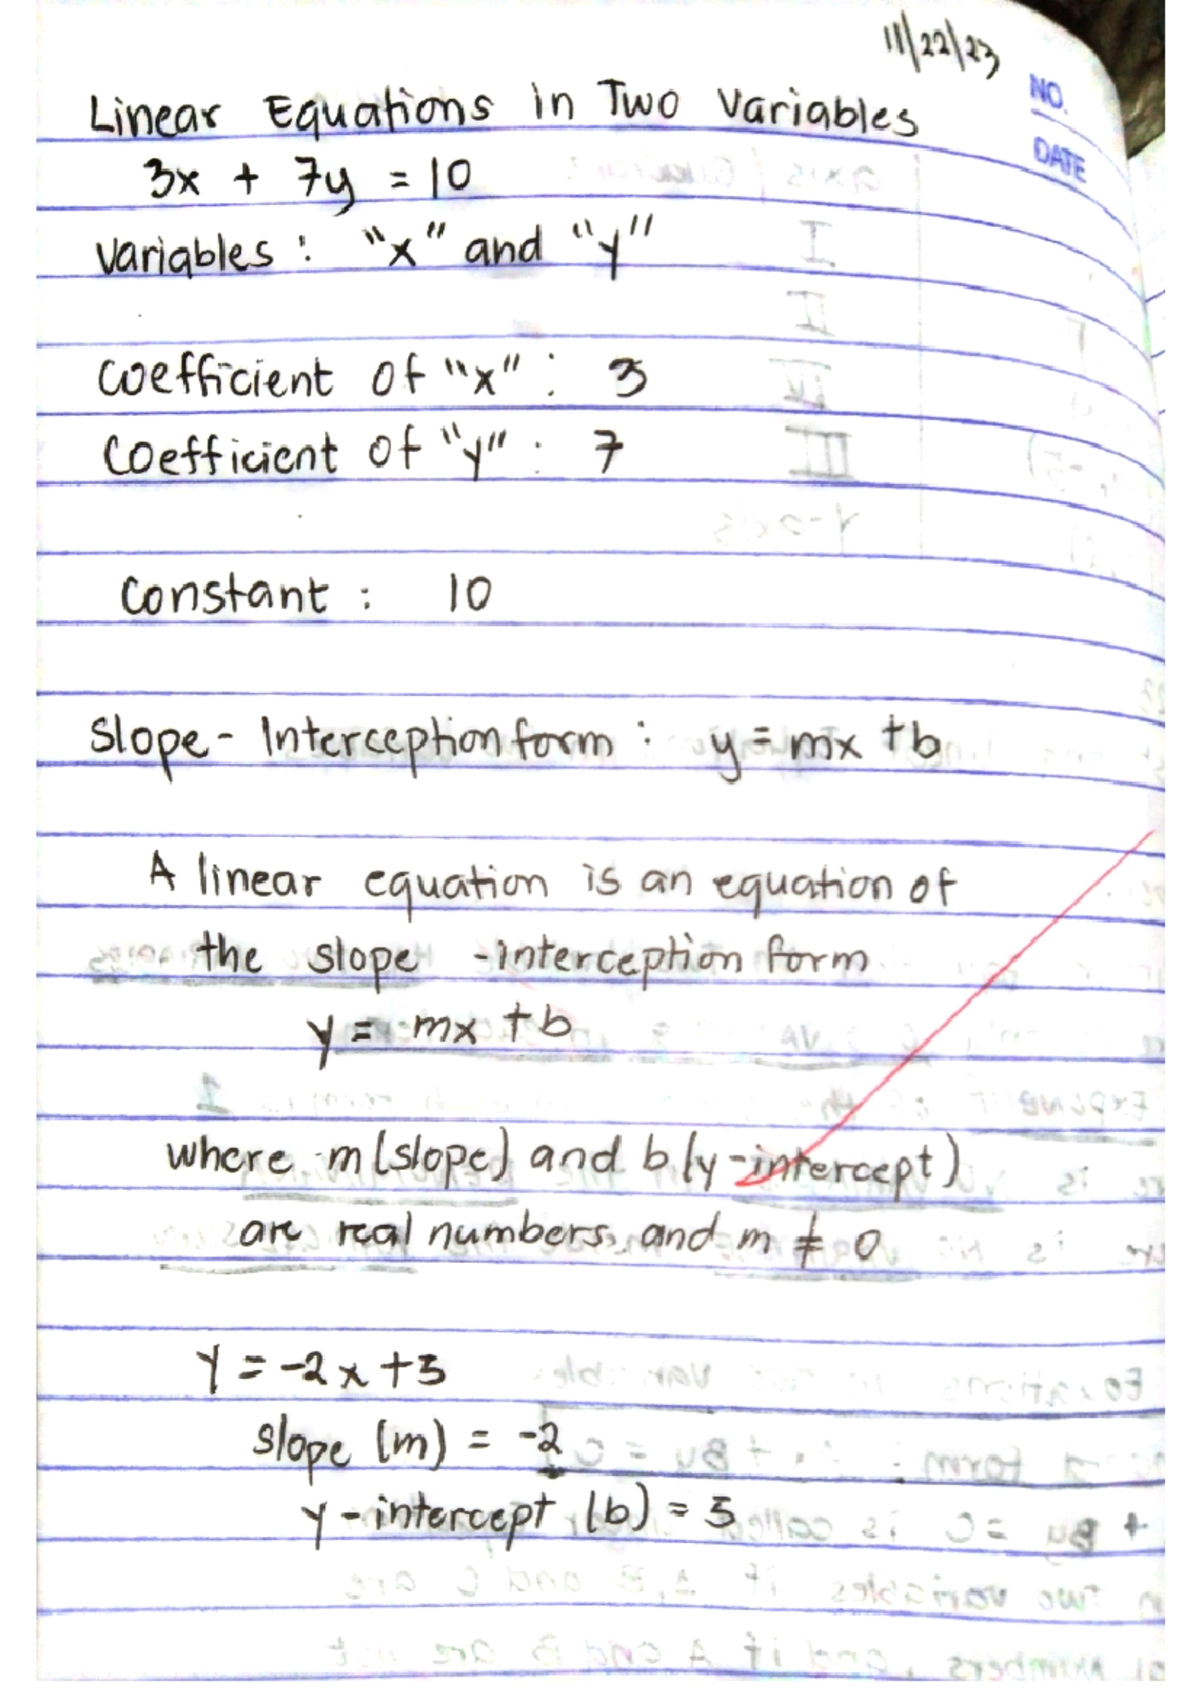 11/22/23
NO.
DATE
Linear Equations in Two Variables
3x + 7y = 10
Variables : "x" and "y"
Coefficient of "x" : 3
Coefficient of "y" : 7
Constant : 10
Slope - Interception form : y = mx + b
A linear equation is an equation of
the slope - interception form
y = mx + b
where m (slope) and b (y-intercept)
are real numbers, and m ≠ 0
y = -2x + 3
slope (m) = -2
y - intercept (b) = 3